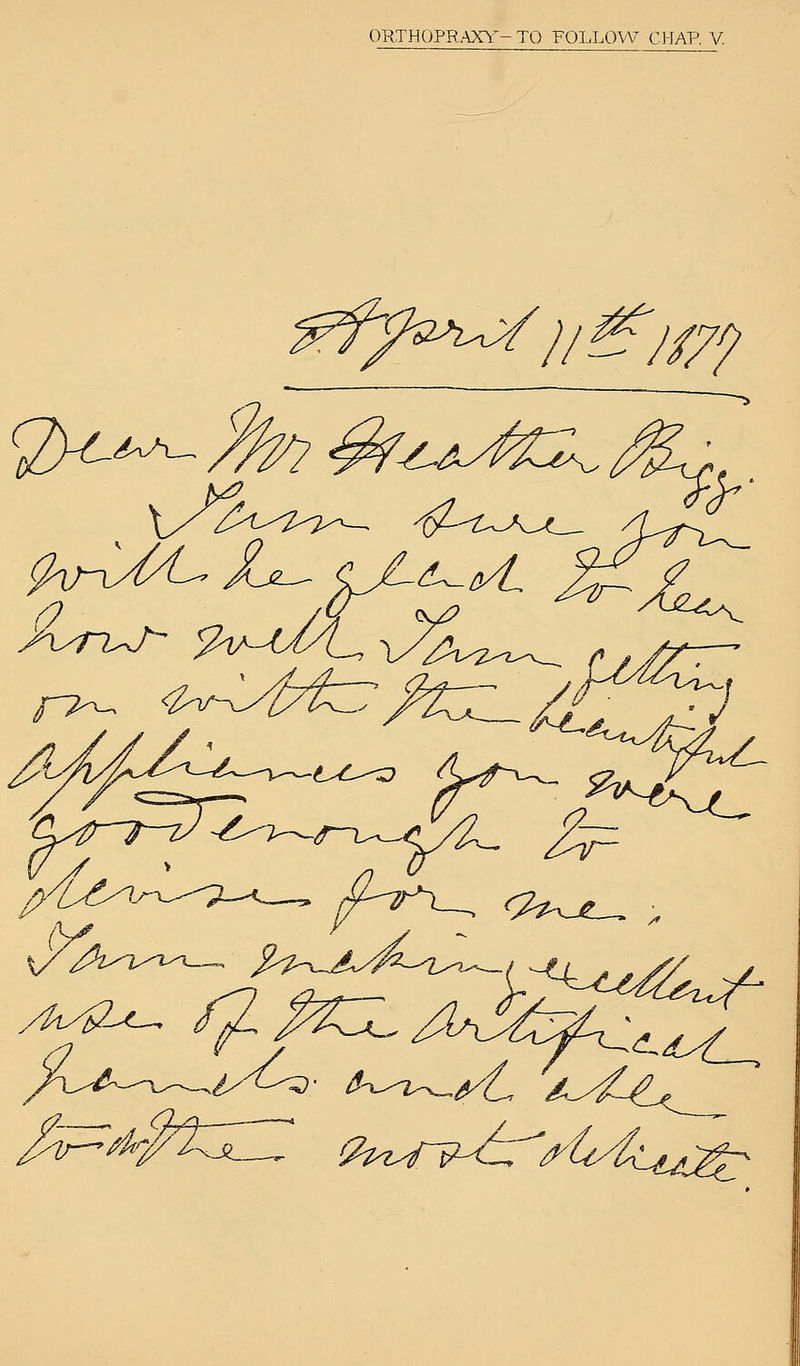 ORTHOPRAXY – TO FOLLOW CHAP. V.
April 11th 1877
Dear Mr Heather Bigg.
I am sure you
will be glad to hear
how well I am getting
on with the beautiful
appliances you were
good enough to
devise for me.
I am making excellent
use of the artifical
hands and able
to do the most delicate.